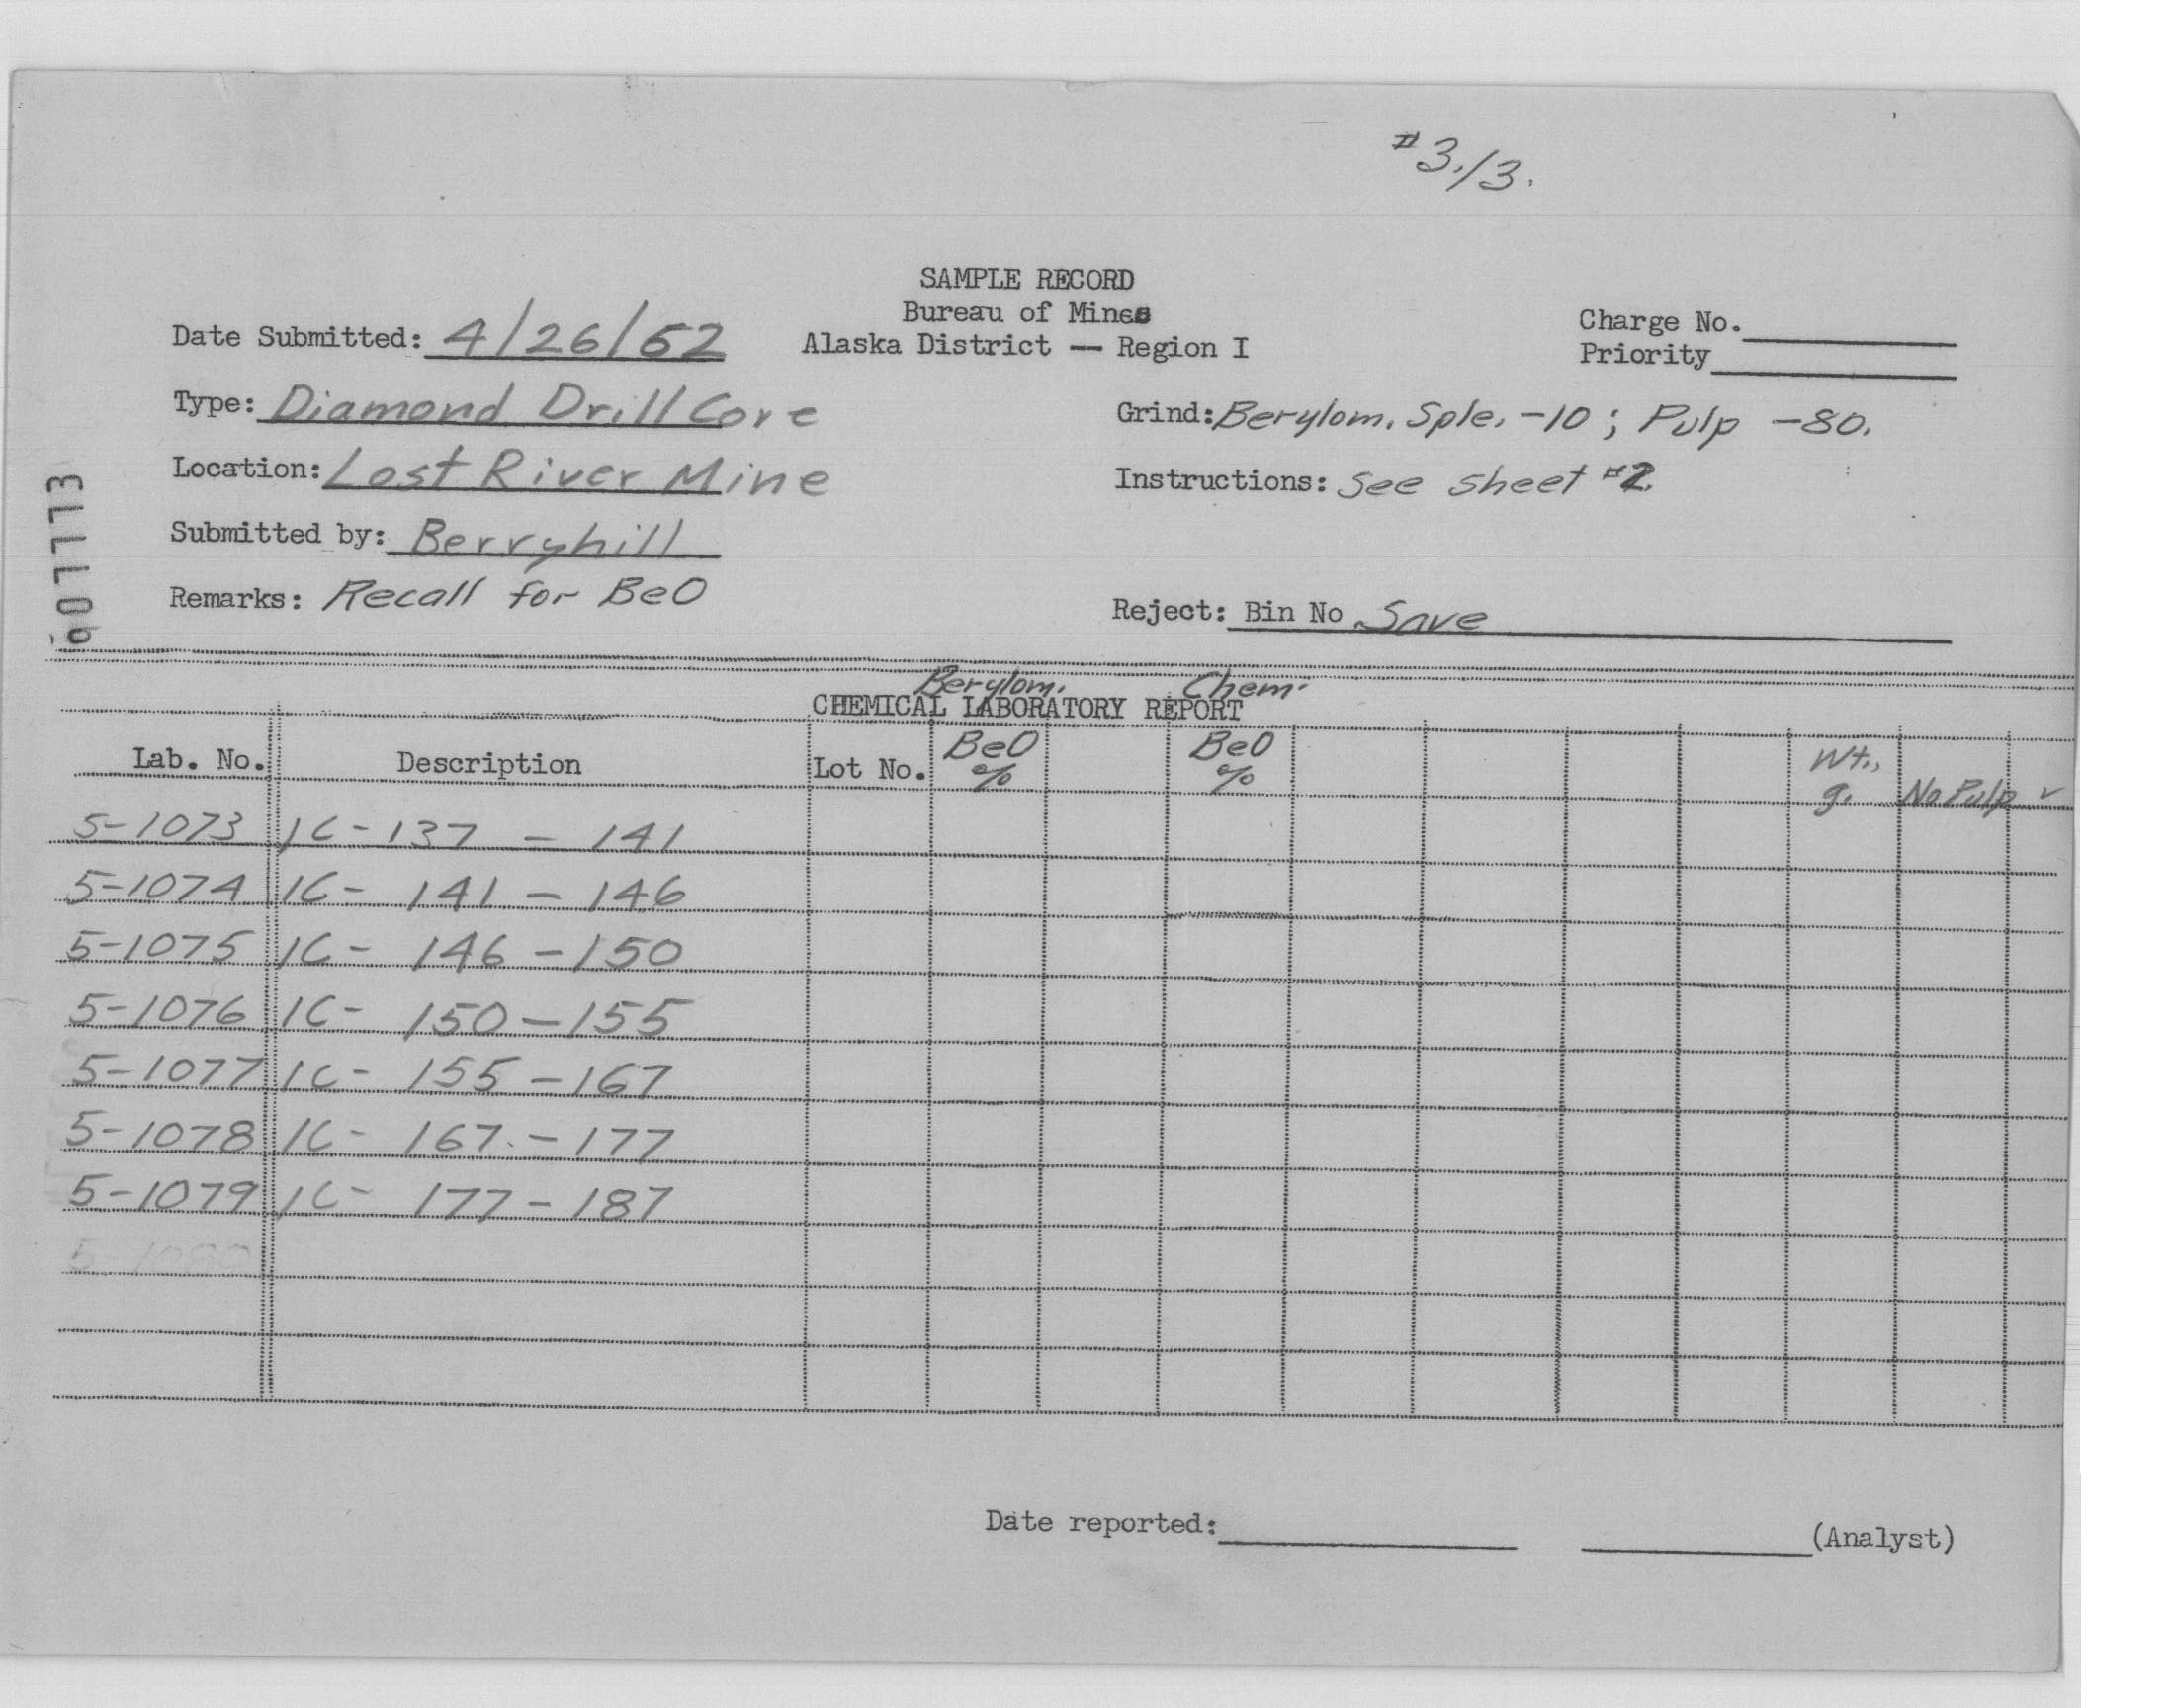 #3./3.
SAMPLE RECORD
Bureau of Mines
Alaska District -- Region I
Charge No.
Priority
Date Submitted: 4/26/62
Type: Diamond Drill Core
Grind: Berylom. Sple. -10 ; Pulp -80.
Location: Lost River Mine
Instructions: See sheet #2.
Submitted by: Berryhill
Remarks: Recall for BeO
Reject: Bin No Save
Berylom. Chem.
CHEMICAL LABORATORY REPORT
Lab. No. Description Lot No. BeO % BeO % Wt., g. No Pulp ✓
5-1073 1C- 137 - 141
5-1074 1C- 141 - 146
5-1075 1C- 146 - 150
5-1076 1C- 150 - 155
5-1077 1C- 155 - 167
5-1078 1C- 167 - 177
5-1079 1C- 177 - 187
5-1080
Date reported: (Analyst)